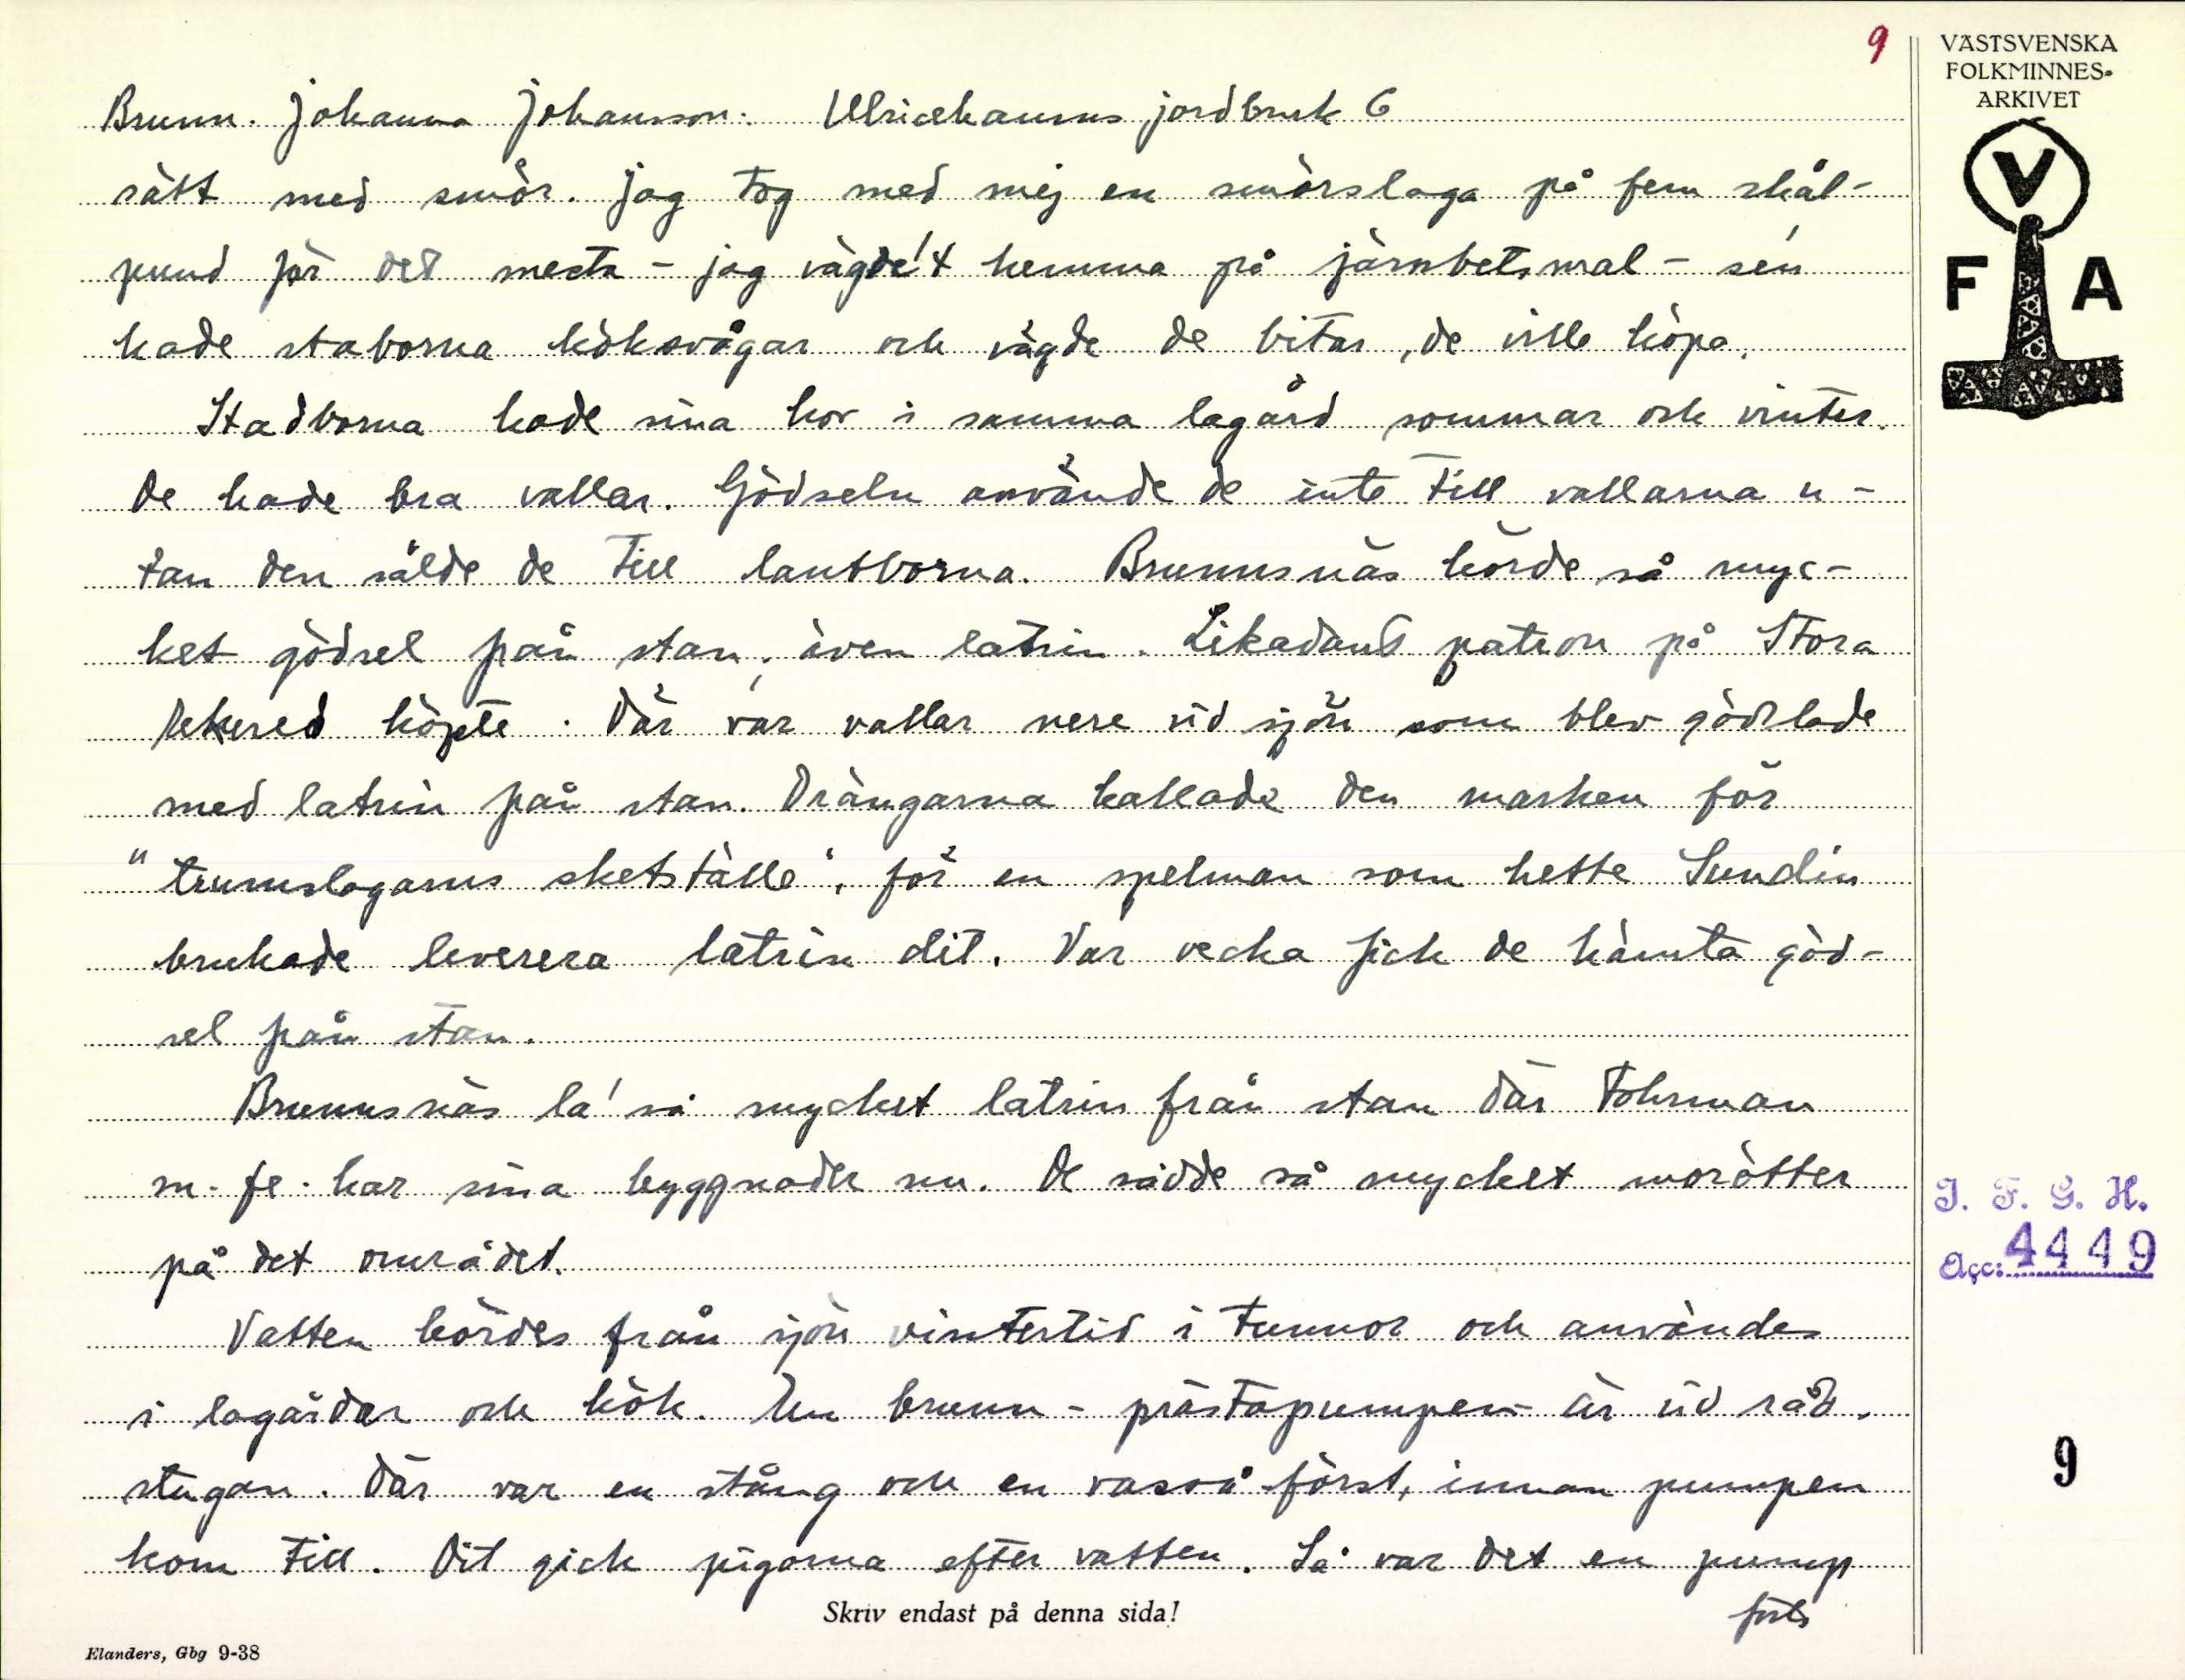 9
VÄSTSVENSKA
FOLKMINNES-
ARKIVET
V
F A
Brunn. Johanna Johansson. Ulricehamns jordbruk 6
sätt med smör. Jag tog med mej en smörslaga på fem skål-
pund för det mesta - jag vägde't hemma på järnbetsmal - sén
hade staborna köksvågar och vägde de bitar, de ville köpa.
Stadborna hade sina kor i samma lagård sommar och vinter.
De hade bra vallar. Gödseln använde de inte till vallarna u-
tan den sålde de till lantborna. Brunnsnäs körde så myc-
ket gödsel från stan, även latrin. Likadant patron på Stora
Rekered köpte. Där var vallar nere vid sjön som blev gödslade
med latrin från stan. Drängarna kallade den marken för
"trumslagarns sketställe", för en spelman som hette Sundin
brukade leverera latrin dit. Var vecka fick de hämta göd-
sel från stan.
Brunnsnäs la' så mycket latrin från stan där Tohrman
m. fl. har sina byggnader nu. De sådde så mycket morötter
på det området.
Vatten kördes från sjön vintertid i tunnor och användes
i lagårdar och kök. En brunn - prästapumpen - är vid råd-
stugan. Där var en stång och en vasså först, innan pumpen
kom till. Dit gick pigorna efter vatten. Så var det en pump
forts
Skriv endast på denna sida!
Elanders, Gbg 9-38
I. F. G. H.
Acc: 4449
9